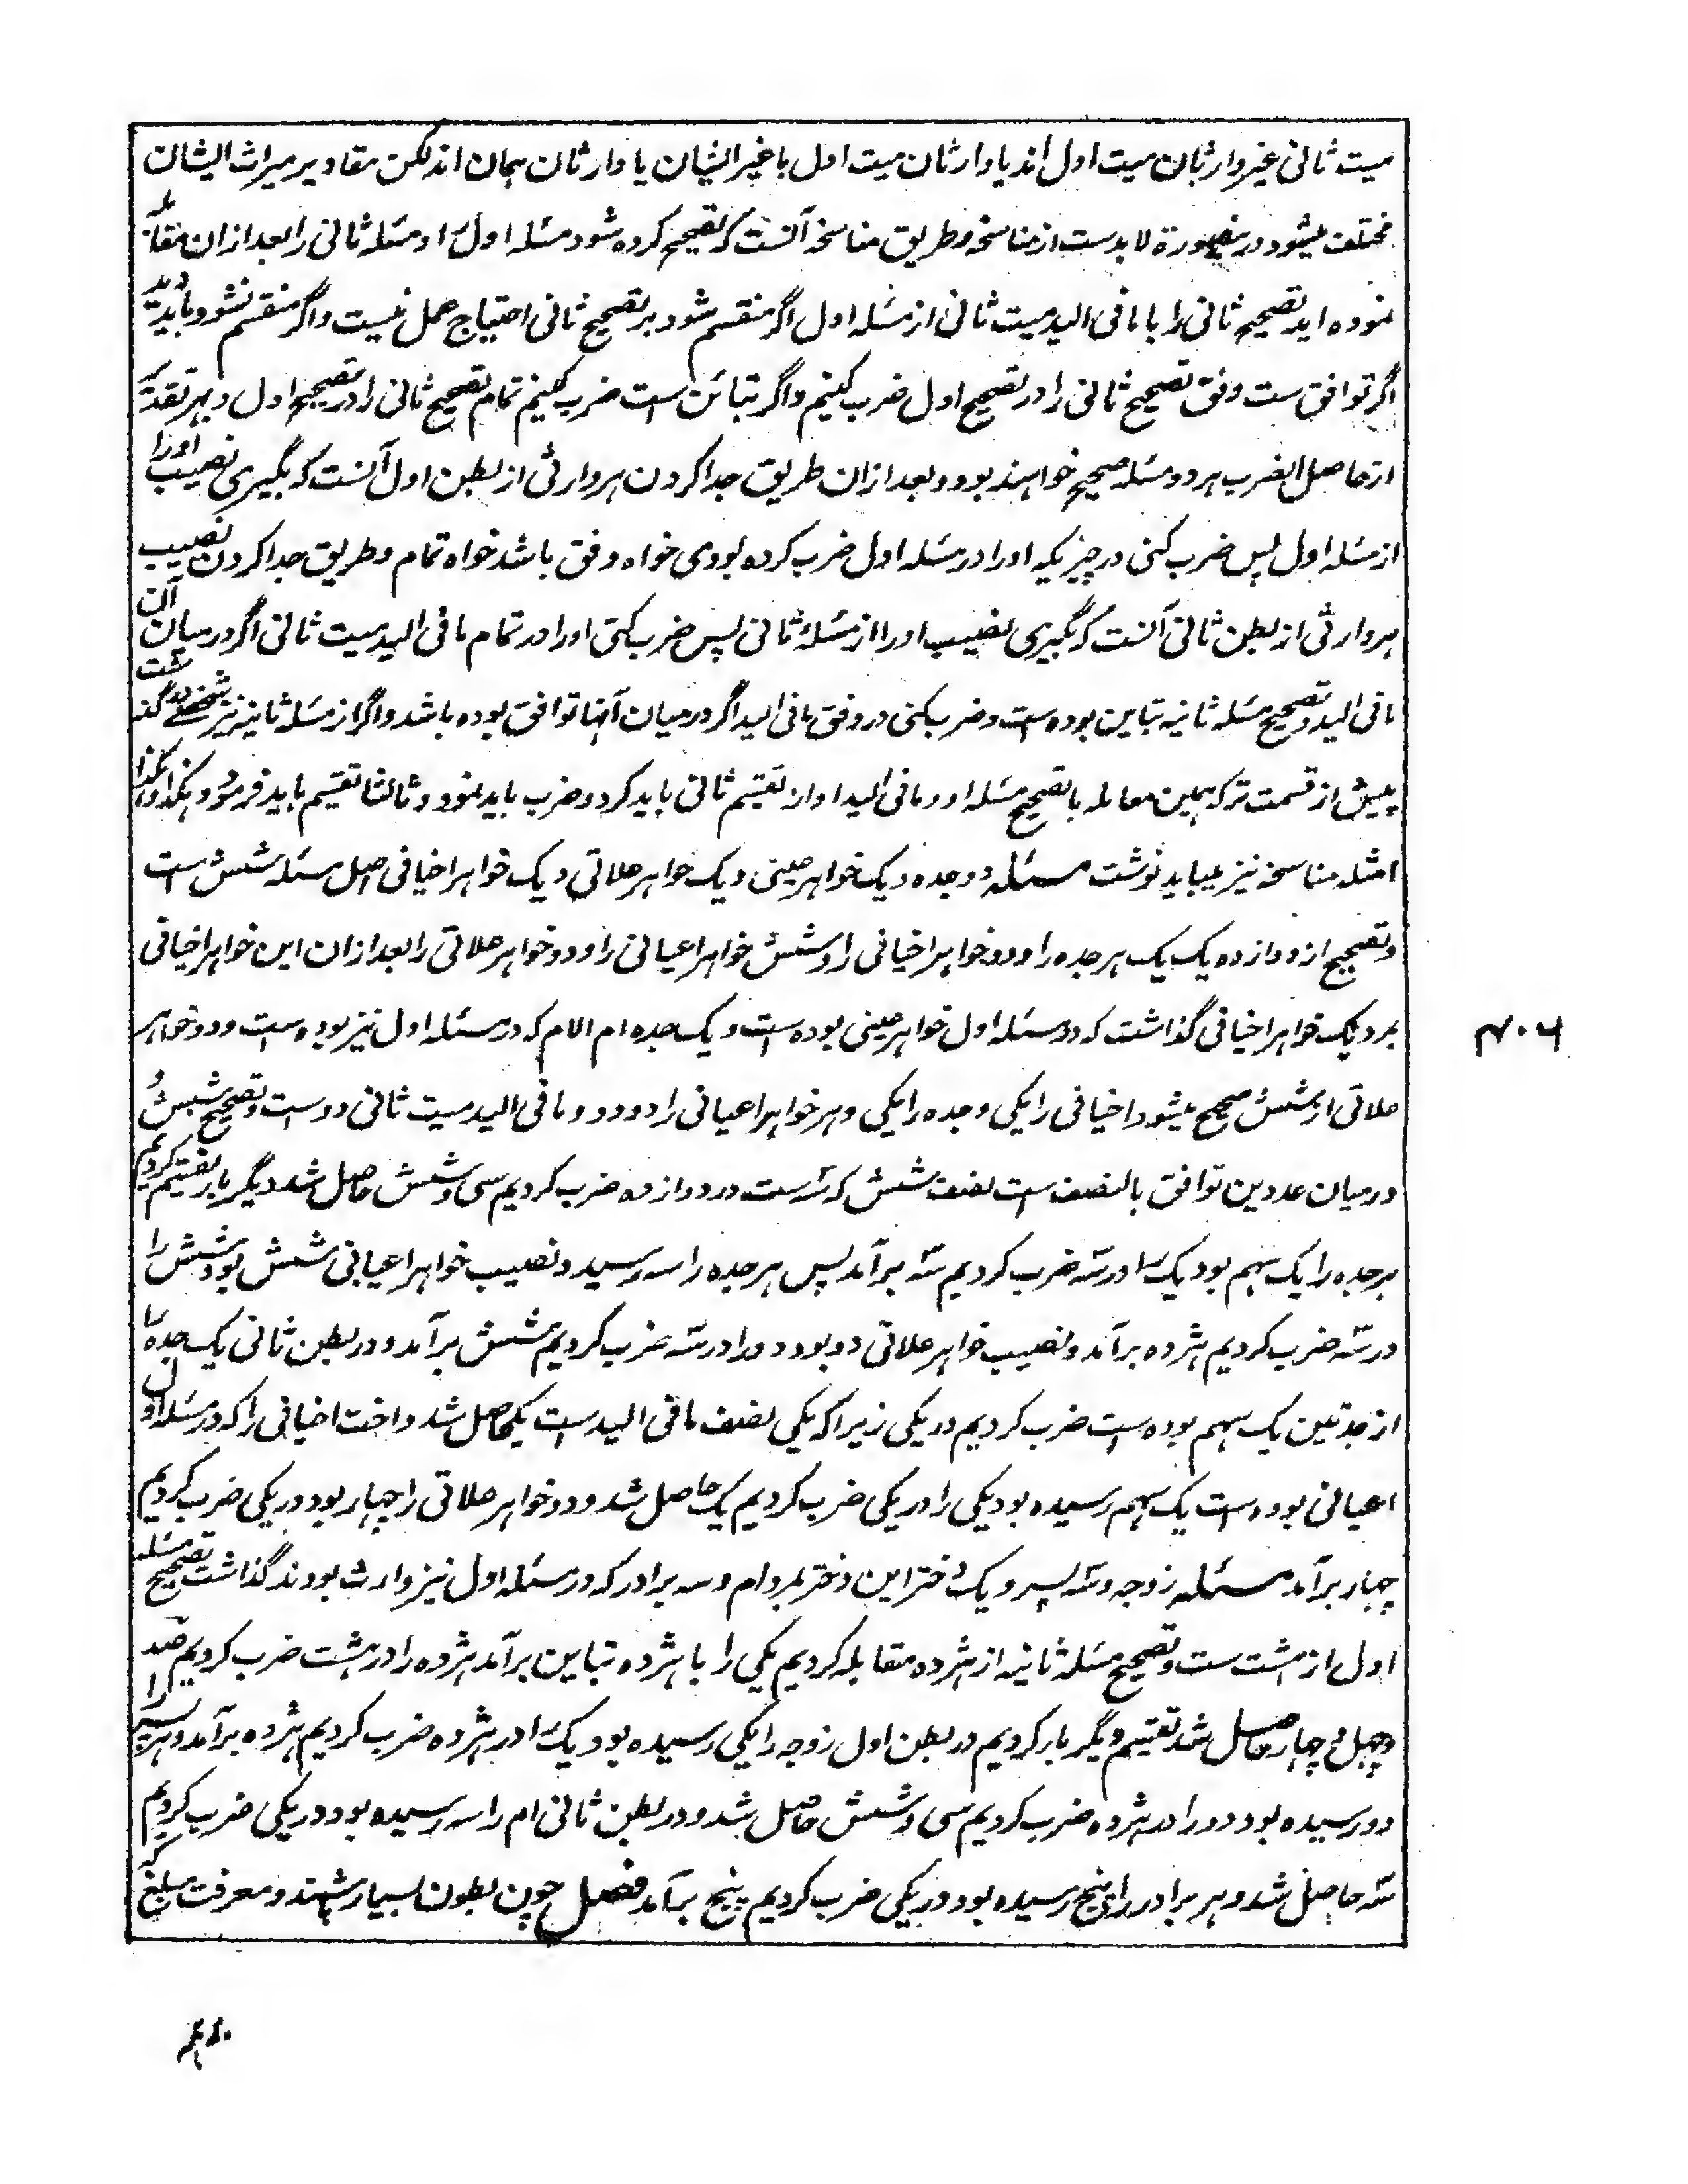 میت ثانی غیر وارثان میت اول اند یا وارثان میت اول با غیر ایشان یا وارثان همان اند لکن مقادیر میراث ایشان
مختلف میشود درینصورة لابدست از مناسخه و طریق مناسخه آنست که تصحیح کرده شود مسئله اول را و مسئله ثانی را بعد ازان مقابله
نموده اید تصحیح ثانی را با مافی الید میت ثانی از مسئله اول اگر منقسم شود بر تصحیح ثانی احتیاج عمل نیست و اگر منقسم نشود باید دید
اگر توافق ست وفق تصحیح ثانی را در تصحیح اول ضرب کنیم و اگر تبائن است ضرب کنیم تمام تصحیح ثانی را در تصحیح اول و بهر تقدیر
از حاصل الضرب هر دو مسئله صحیح خواهند بود و بعد ازان طریق جدا کردن هر وارثی از بطن اول آنست که بگیری نصیب او را
از مسئله اول پس ضرب کنی در چیزیکه او را در مسئله اول ضرب کرده بودی خواه وفق باشد خواه تمام و طریق جدا کردن نصیب
هر وارثی از بطن ثانی آنست که بگیری نصیب او را از مسئله ثانی پس ضرب کنی او را در تمام مافی الید میت ثانی اگر در میان آن
مافی الید و تصحیح مسئله ثانیه تباین بوده است و ضرب کنی در وفق مافی الید اگر درمیان آنها توافق بوده باشد و اگر از مسئله ثانیه نیز شخصے در گذشت
پیش از قسمت ترکه همین معامله با تصحیح مسئله او و مافی الید او از تقسیم ثانی باید کرد و ضرب باید نمود و ثالثا تقسیم باید فرمود و هکذا و هکذا
امثله مناسخه نیز میباید نوشت مسئله دو جده و یک خواهر عینی و یک خواهر علاتی و یک خواهر اخیافی اصل مسئله شش است
و تصحیح از دوازده یک یک هر جده را و دو خواهر اخیافی را و شش خواهر اعیانی را و دو خواهر علاتی را بعد ازان این خواهر اخیافی
بمرد یک خواهر اخیافی گذاشت که در مسئله اول خواهر عینی بوده ست و یک جده ام الام که در مسئله اول نیز بوده ست و دو خواهر
علاتی از شش صحیح میشود اخیافی را یکی و جده را یکی و هر خواهر اعیانی را دو دو و مافی الید میت ثانی دو ست و تصحیح شش و
درمیان عددین توافق بالنصف ست نصف شش که سه ست در دوازده ضرب کردیم سی و شش حاصل شد دیگر بار تقسیم کردیم
هر جده را یک سهم بود یک را در سه ضرب کردیم سه برآمد پس هر جده را سه رسید و نصیب خواهر اعیانی شش بود شش را
در سه ضرب کردیم هژده برآمد و نصیب خواهر علاتی دو بود دو را در سه ضرب کردیم شش برآمد و در بطن ثانی یک جده را
از جدتین یک سهم بوده ست ضرب کردیم در یکی زیرا که یکی نصف مافی الید ست یکی حاصل شد و اخت اخیافی را که در مسئله اول
اعیانی بوده ست یک سهم رسیده بود یکی را در یکی ضرب کردیم یک حاصل شد و دو خواهر علاتی را چهار بود در یکی ضرب کردیم
چهار برآمد مسئله زوجه و سه پسر و یک دختر این دختر بمرد ام و سه برادر که در مسئله اول نیز وارث بودند گذاشت تصحیح مسئله
اول از هشت ست و تصحیح مسئله ثانیه از هژده مقابله کردیم یکی را با هژده تباین برآمد هژده را در هشت ضرب کردیم صد
و چهل و چهار حاصل شد تقسیم دیگر بار کردیم در بطن اول زوجه را یکی رسیده بود یک را در هژده ضرب کردیم هژده برآمد و هر پسر را
دو رسیده بود دو را در هژده ضرب کردیم سی و شش حاصل شد و در بطن ثانی ام را سه رسیده بود در یکی ضرب کردیم
سه حاصل شد و هر برادر را پنج رسیده بود در یکی ضرب کردیم پنج برآمد فصل چون بطون بسیار شوند و معرفت مبلغ که
۴۰۶